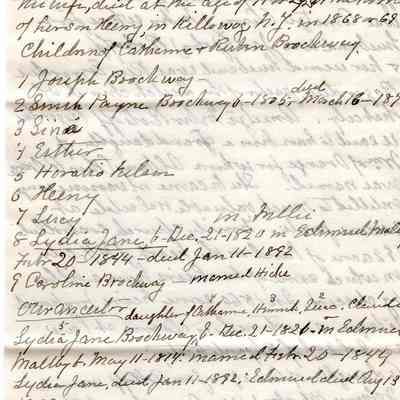 his wife, died at the age of
of her son Henry, in Killawog N.Y. in 1868 or 69
Children of Catherine & Reuben Brockway
1 Joseph Brockway -
2 Smith Payne Brockway b-1805, died March 16-187
3 Sina
4 Esther
5 Horatio Nelson
6 Henry
7 Lucy
8 Lydia Jane, b-Dec. 21-1820 m Edmund Mal
Febr 20 1844 - died Jan 11-1892
9 Caroline Brockway - married Hicks
Our ancestor daughter of
Lydia Jane Brockway, b Dec. 21-1820-m Edmun
Maltby b. May 11-1814. married Febr. 20-1844
Lydia Jane, died Jan 11-1892; Edmund died Aug 13